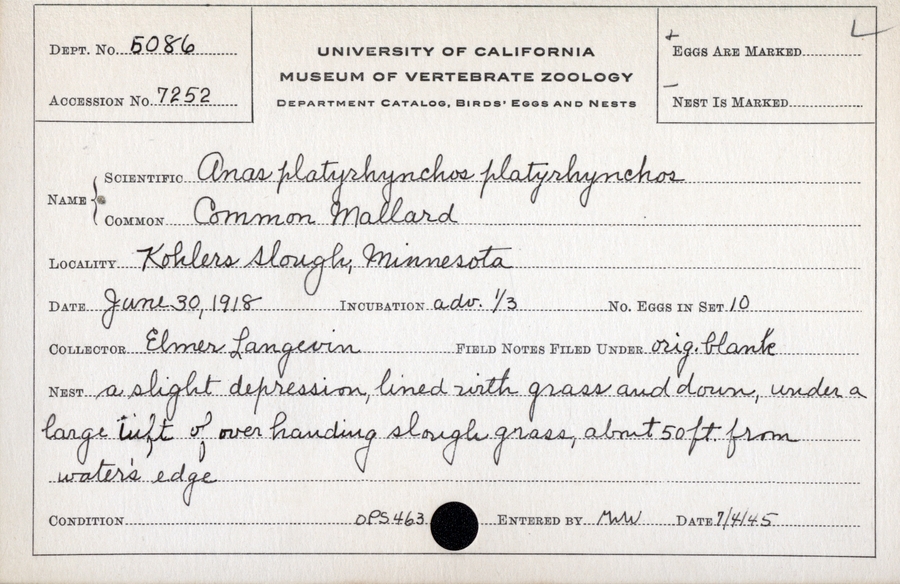 Dept. No. 5086
Accession No. 7252
UNIVERSITY OF CALIFORNIA
MUSEUM OF VERTEBRATE ZOOLOGY
Department Catalog, Birds' Eggs and Nests
+ Eggs Are Marked
– Nest Is Marked
L
Name { Scientific Anas platyrhynchos platyrhynchos
Common Common Mallard
Locality Kohlers Slough, Minnesota
Date June 30, 1918 Incubation adv. 1/3 No. Eggs in Set 10
Collector Elmer Langevin Field Notes Filed Under orig. blank
Nest a slight depression, lined with grass and down, under a
large tuft of over handing slough grass, about 50 ft. from
water's edge
Condition OPS.463 Entered by MWW Date 7/4/45